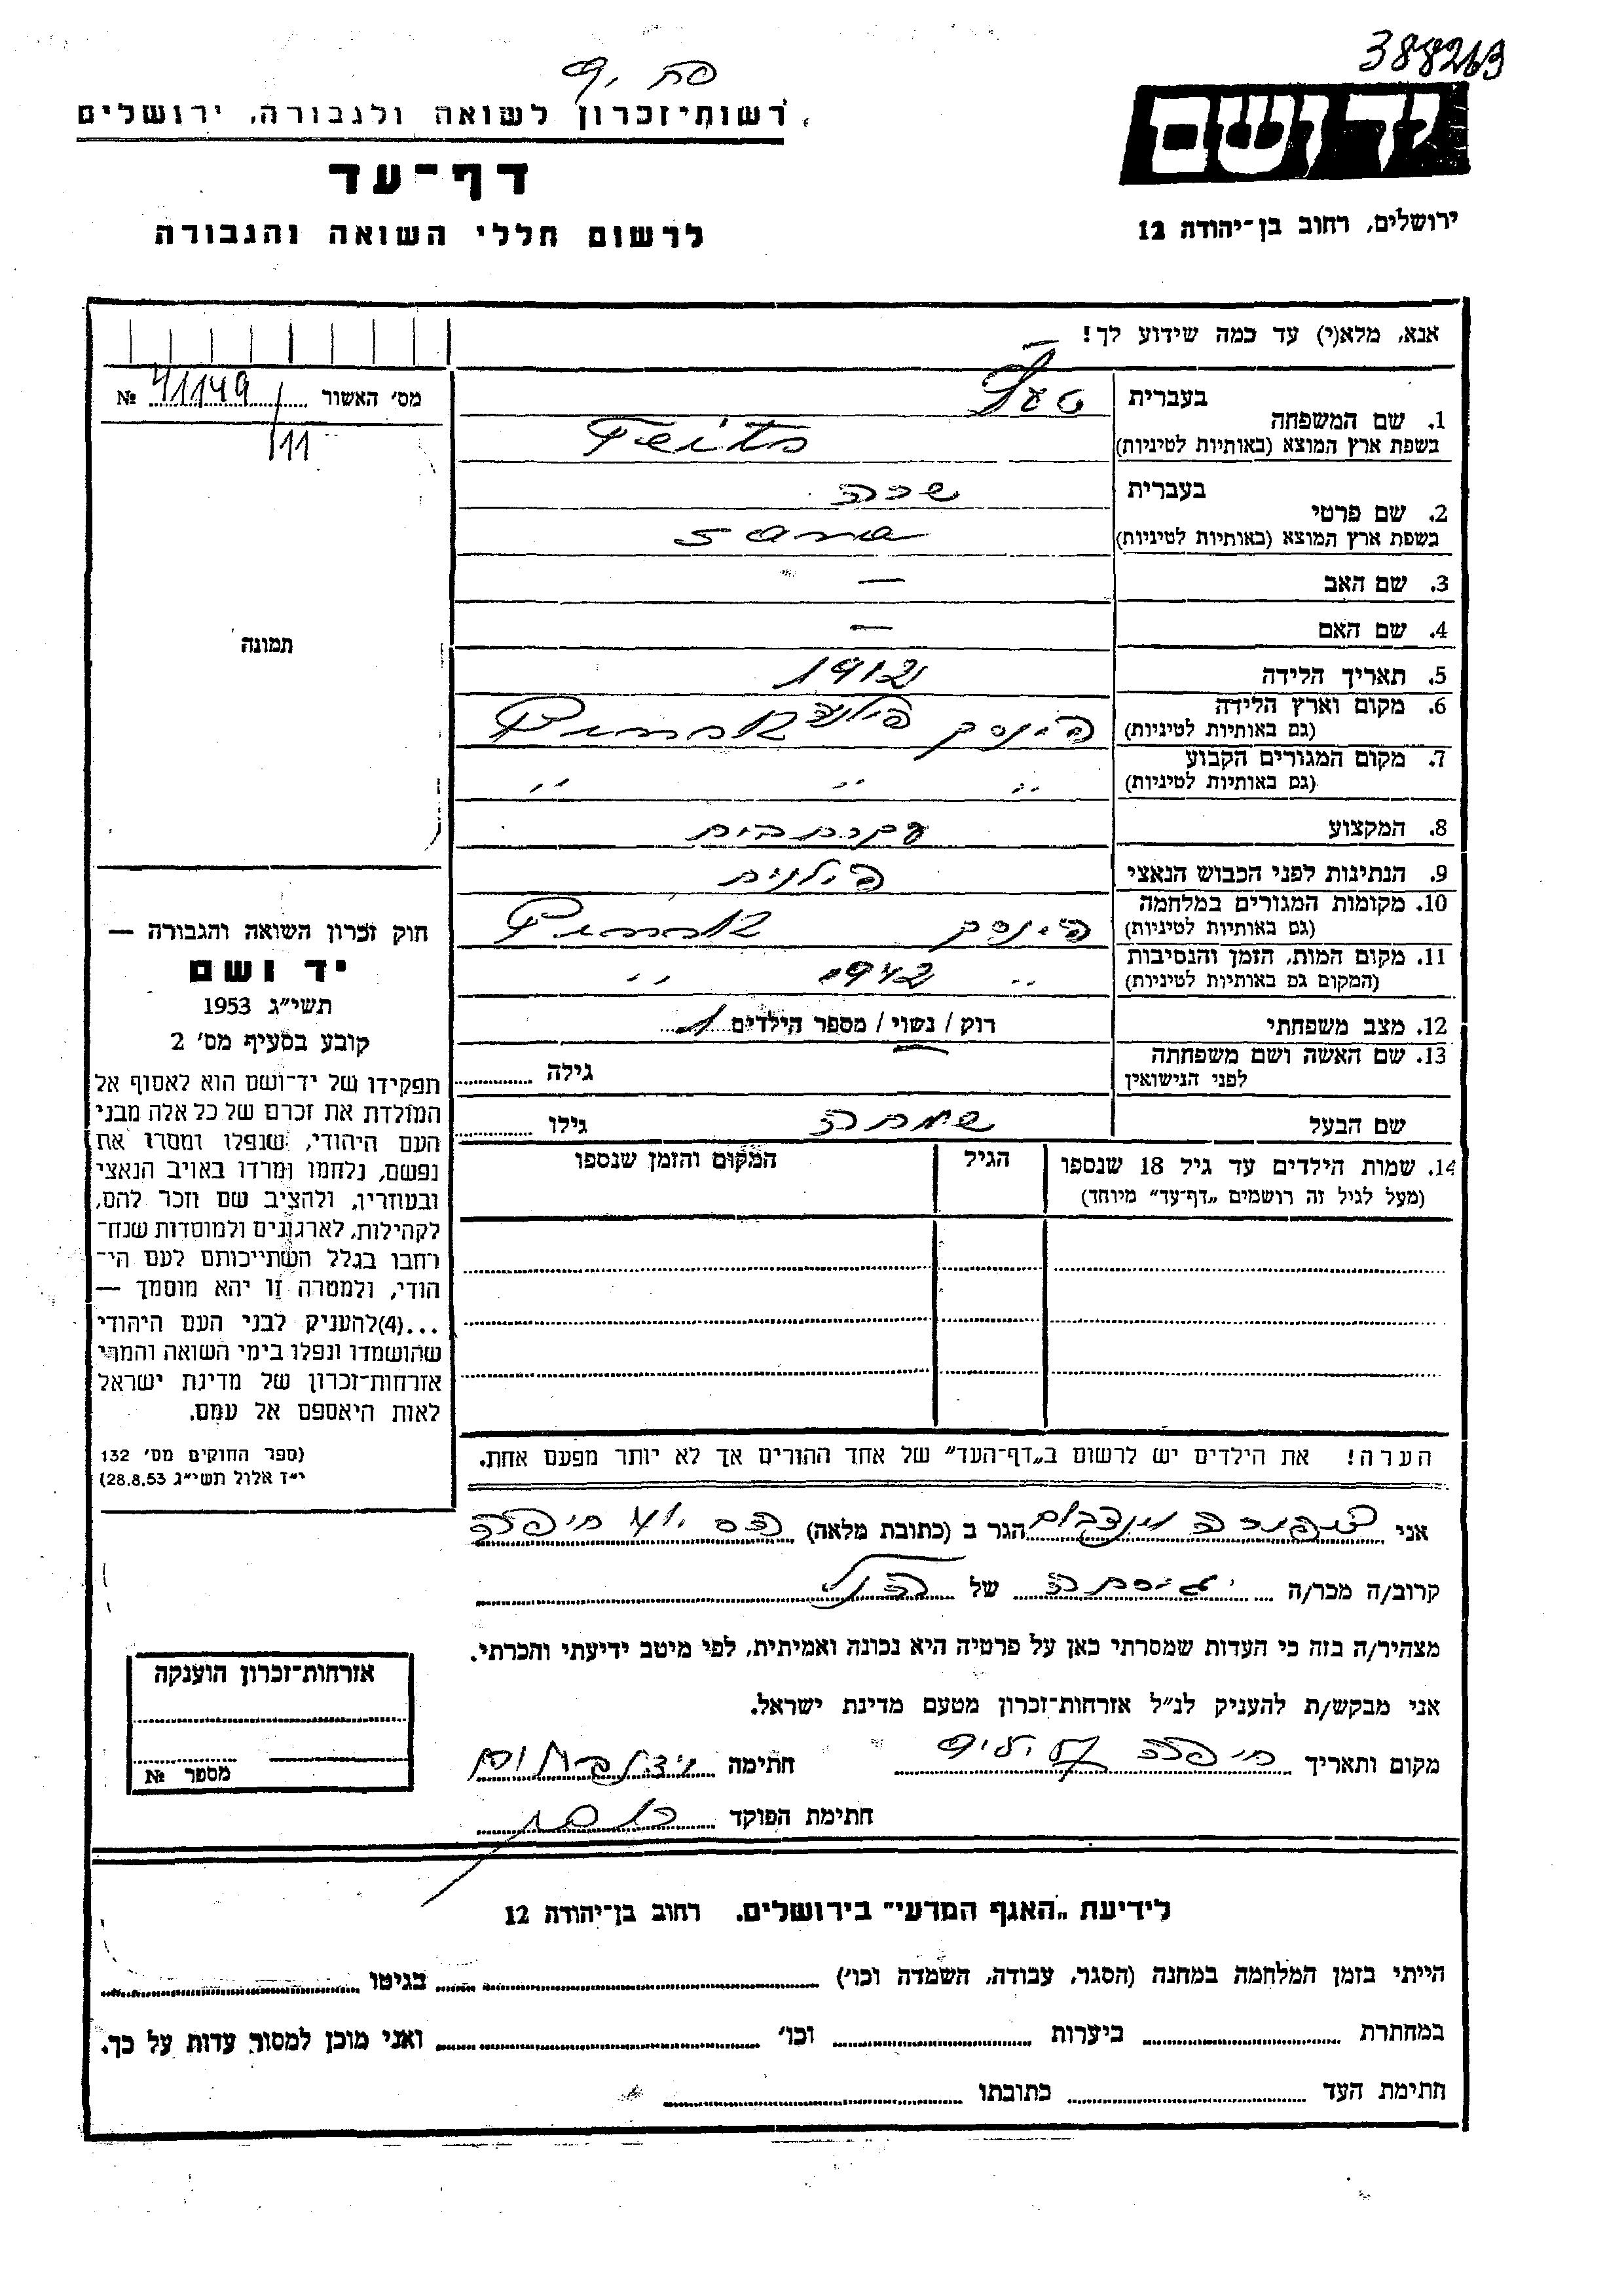 388263
יד ושם
ירושלים, רחוב בן־יהודה 12
רשות־זכרון לשואה ולגבורה, ירושלים
דף־עד
לרשום חללי השואה והגבורה
אנא, מלא(י) עד כמה שידוע לך!
מס׳ האשור № 41149
/11
תמונה
חוק זכרון השואה והגבורה —
יד ושם
תשי״ג 1953
קובע בסעיף מס׳ 2
תפקידו של יד־ושם הוא לאסוף אל
המולדת את זכרם של כל אלה מבני
העם היהודי, שנפלו ומסרו את
נפשם, נלחמו ומרדו באויב הנאצי
ובעוזריו, ולהציב שם וזכר להם,
לקהילות, לארגונים ולמוסדות שנח־
רחבו בגלל השתייכותם לעם הי־
הודי, ולמטרה זו יהא מוסמך —
...(4) להעניק לבני העם היהודי
שהושמדו ונפלו בימי השואה והמרי
אזרחות־זכרון של מדינת ישראל
לאות היאספם אל עמם.
(ספר החוקים מס׳ 132
י״ז אלול תשי״ג 28.8.53)
1. שם המשפחה
בעברית
בשפת ארץ המוצא (באותיות לטיניות) Feits
2. שם פרטי
בעברית שרה
בשפת ארץ המוצא (באותיות לטיניות)
3. שם האב —
4. שם האם —
5. תאריך הלידה 1912
6. מקום וארץ הלידה
(גם באותיות לטיניות) פינסק
7. מקום המגורים הקבוע
(גם באותיות לטיניות) ״ ״ ״
8. המקצוע עקרת בית
9. הנתינות לפני הכבוש הנאצי פולנית
10. מקומות המגורים במלחמה
(גם באותיות לטיניות) פינסק
11. מקום המות, הזמן והנסיבות
(המקום גם באותיות לטיניות) ״ 1942 ״
12. מצב משפחתי רוק / נשוי / מספר הילדים 1
13. שם האשה ושם משפחתה
לפני הנישואין
גילה
שם הבעל שמחה גילו
14. שמות הילדים עד גיל 18 שנספו
(מעל לגיל זה רושמים „דף־עד״ מיוחד)
הגיל
המקום והזמן שנספו
הערה! את הילדים יש לרשום ב„דף־העד״ של אחד ההורים אך לא יותר מפעם אחת.
אני צפורה הגר ב (כתובת מלאה) חיפה
קרוב/ה מכר/ה גיסתה של הנ״ל
מצהיר/ה בזה כי העדות שמסרתי כאן על פרטיה היא נכונה ואמיתית, לפי מיטב ידיעתי והכרתי.
אני מבקש/ת להעניק לנ״ל אזרחות־זכרון מטעם מדינת ישראל.
מקום ותאריך חיפה חתימה
חתימת הפוקד
אזרחות־זכרון הוענקה
מספר №
לידיעת „האגף המדעי״ בירושלים. רחוב בן־יהודה 12
הייתי בזמן המלחמה במחנה (הסגר, עבודה, השמדה וכו׳) בגיטו
במחתרת ביערות וכו׳ ואני מוכן למסור עדות על כך.
חתימת העד כתובתו